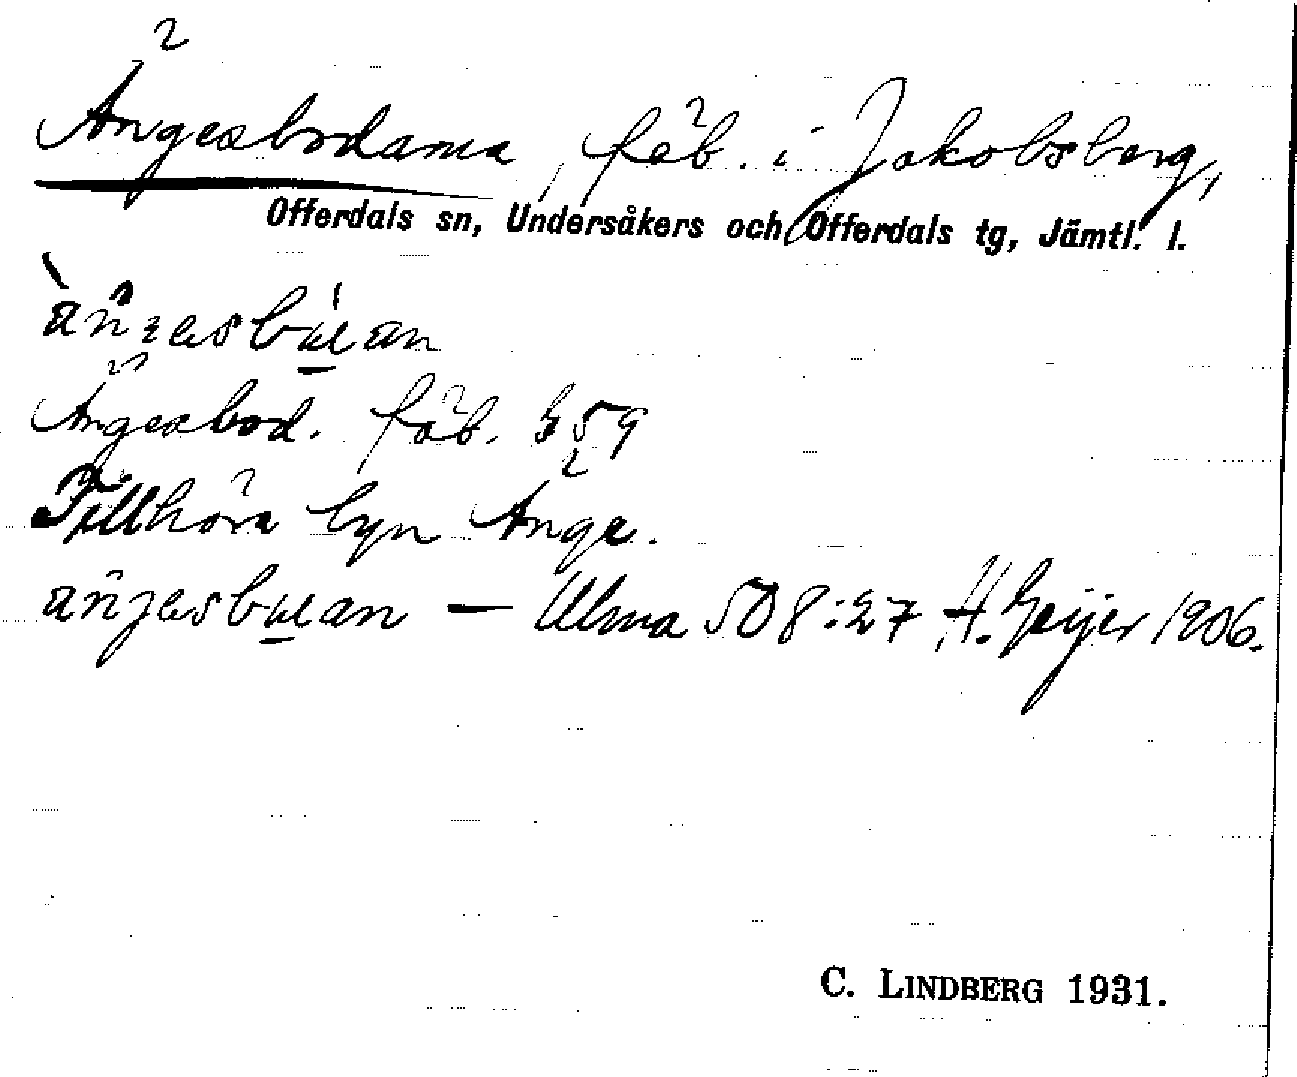 Ängesbodarna, fäb. i Jakobsberg,
Offerdals sn, Undersåkers och Offerdals tg, Jämtl. l.
Ängesbod. fäb. G 59
Tillhöra byn Änge.
— Ulma 508:27 H. Geijer 1906.
C. LINDBERG 1931.